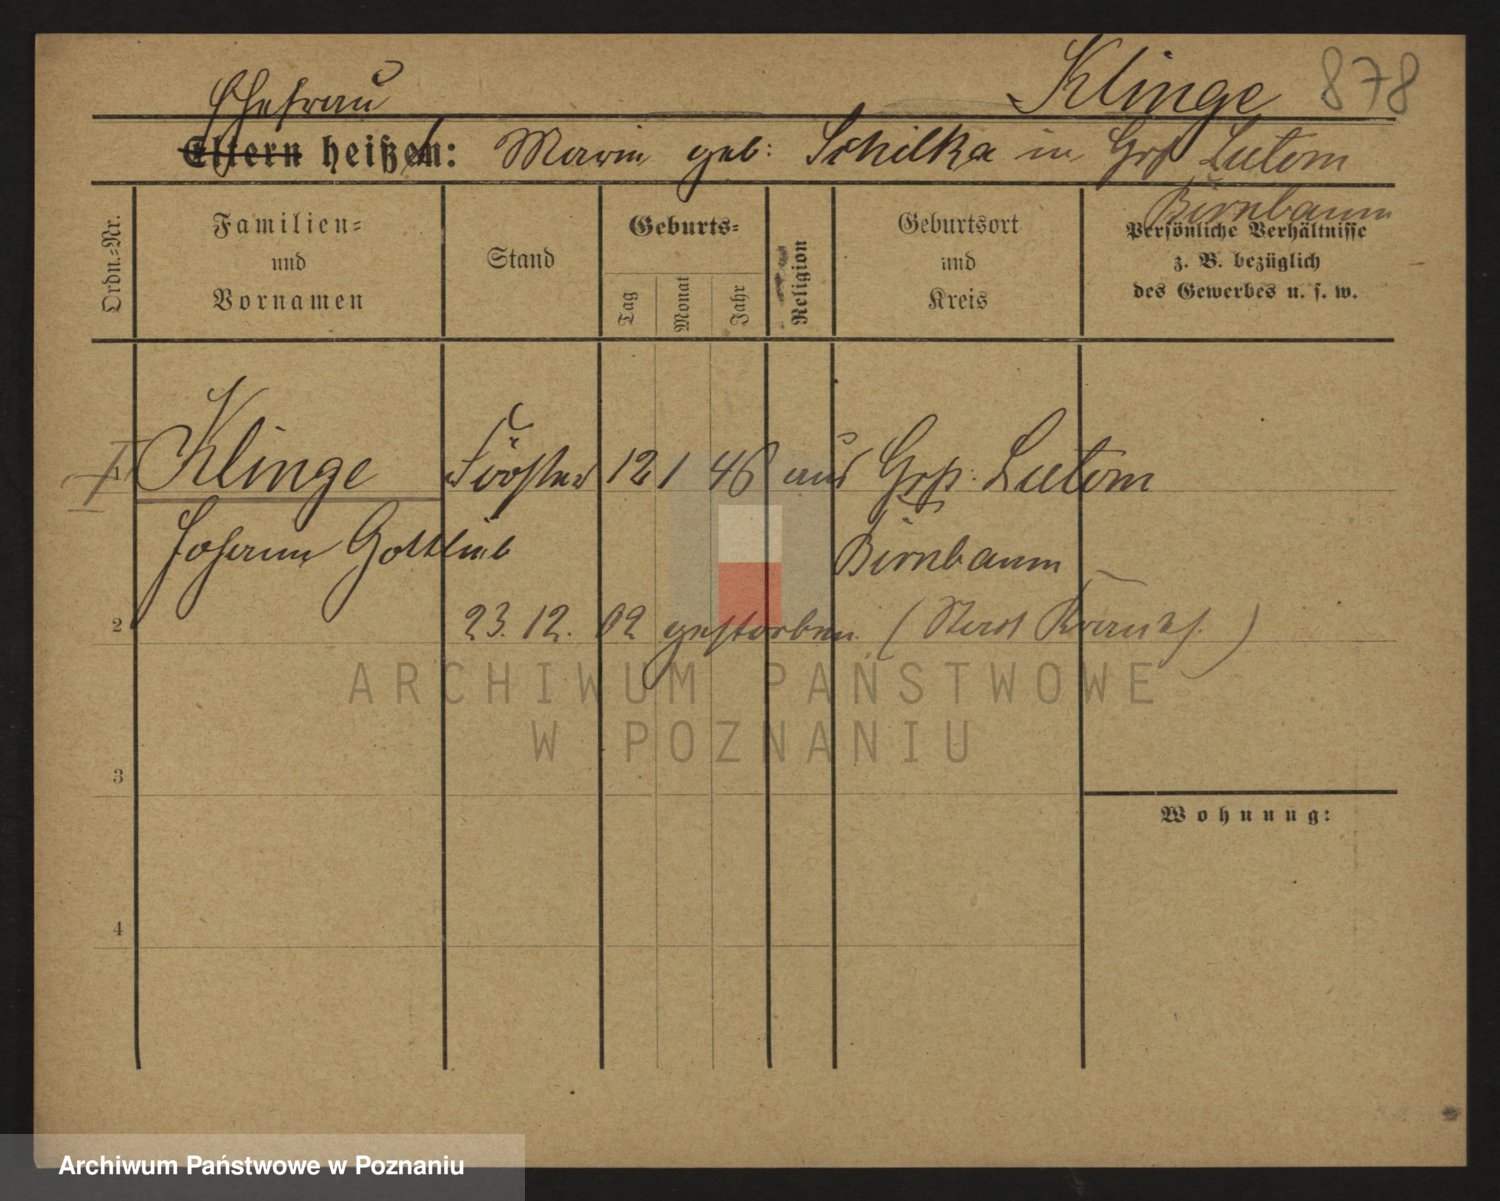 Klinge 878
Ehefrau
Eltern heißen: Marie geb: Schilka in Grß Lutom
Birnbaum
Ordn.-Nr.
Familien- und Vornamen
Stand
Geburts-
Tag Monat Jahr
Religion
Geburtsort und Kreis
Persönliche Verhältnisse
z. B. bezüglich
des Gewerbes u. s. w.
Klinge Förster 12 1 46 aus Grß. Lutom
Johann Gottlieb Birnbaum
2 23. 12. 02 gestorben
ARCHIWUM PAŃSTWOWE
W POZNANIU
3
Wohnung:
4
Archiwum Państwowe w Poznaniu